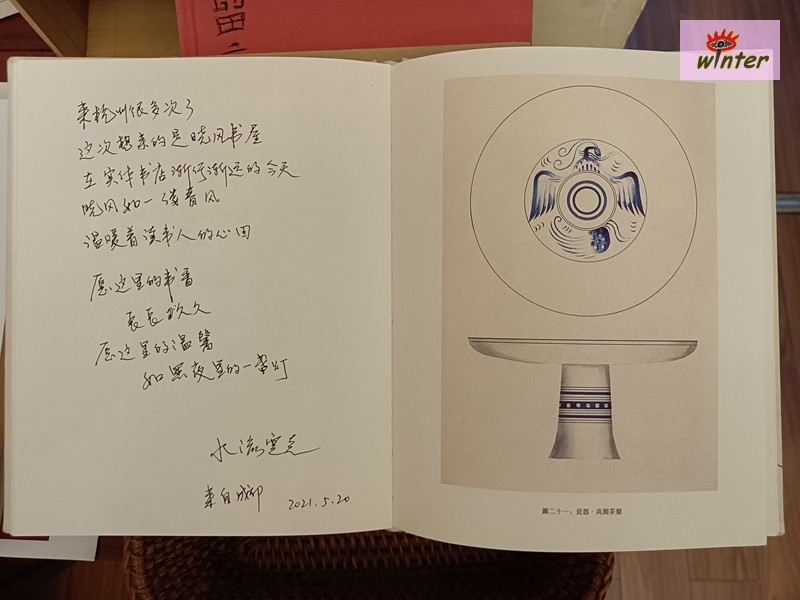 来杭州很多次了
这次想来的是晓风书屋
在实体书店渐行渐远的今天
晓风如一缕春风
温暖着读书人的心田
愿这里的书香
长长久久
愿这里的温馨
如黑夜里的一盏灯
水流云在
来自成都
2021.5.20
圖二十一：瓷器·高腳茶盤
winter